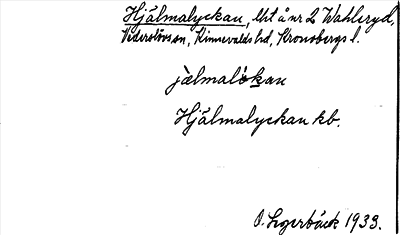 Hjälmalyckan, lht å nr 2 Wahlsryd,
Vederslövs sn, Kinnevalds hd, Kronobergs l.
jälmalökan
Hjälmalyckan kb.
O. Legerbäck 1933.